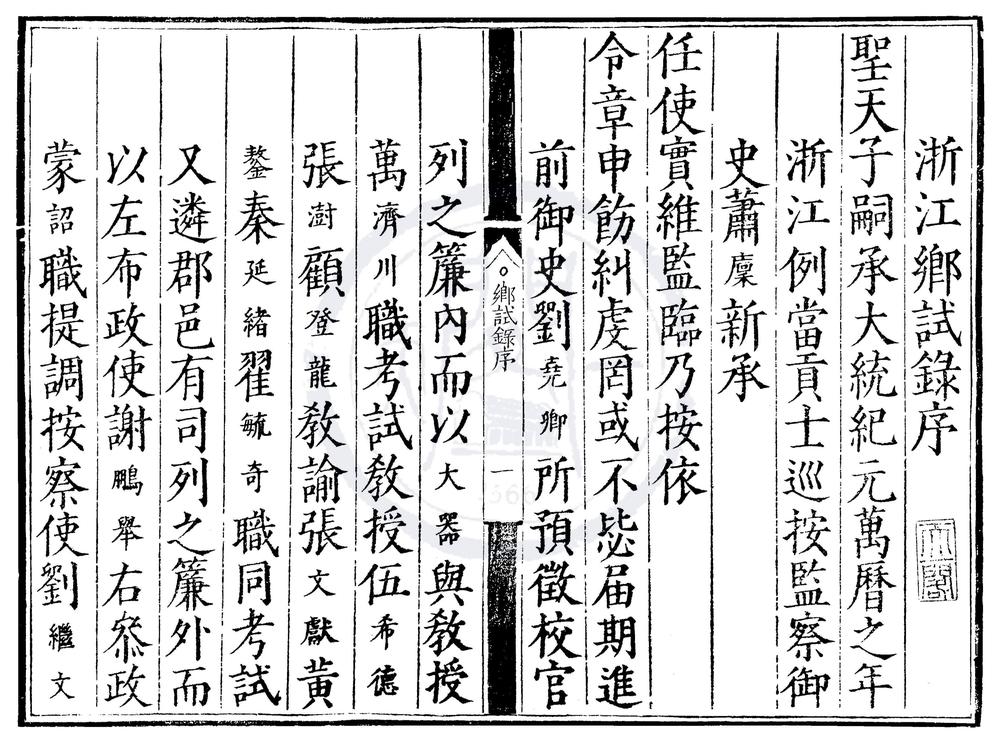 浙江鄉試錄序
聖天子嗣承大統紀元萬曆之年
浙江例當貢士巡按監察御
史蕭廩新承
任使實維監臨乃按依
令章申飭糾虔罔或不毖届期進
前御史劉堯卿所預徵校官
鄉試錄序
一
列之簾內而以大器與敎授
萬濟川職考試敎授伍希德
張澍顧登龍敎諭張文獻黃
鏊秦延緒翟毓奇職同考試
又遴郡邑有司列之簾外而
以左布政使謝鵬舉右叅政
蒙詔職提調按察使劉繼文